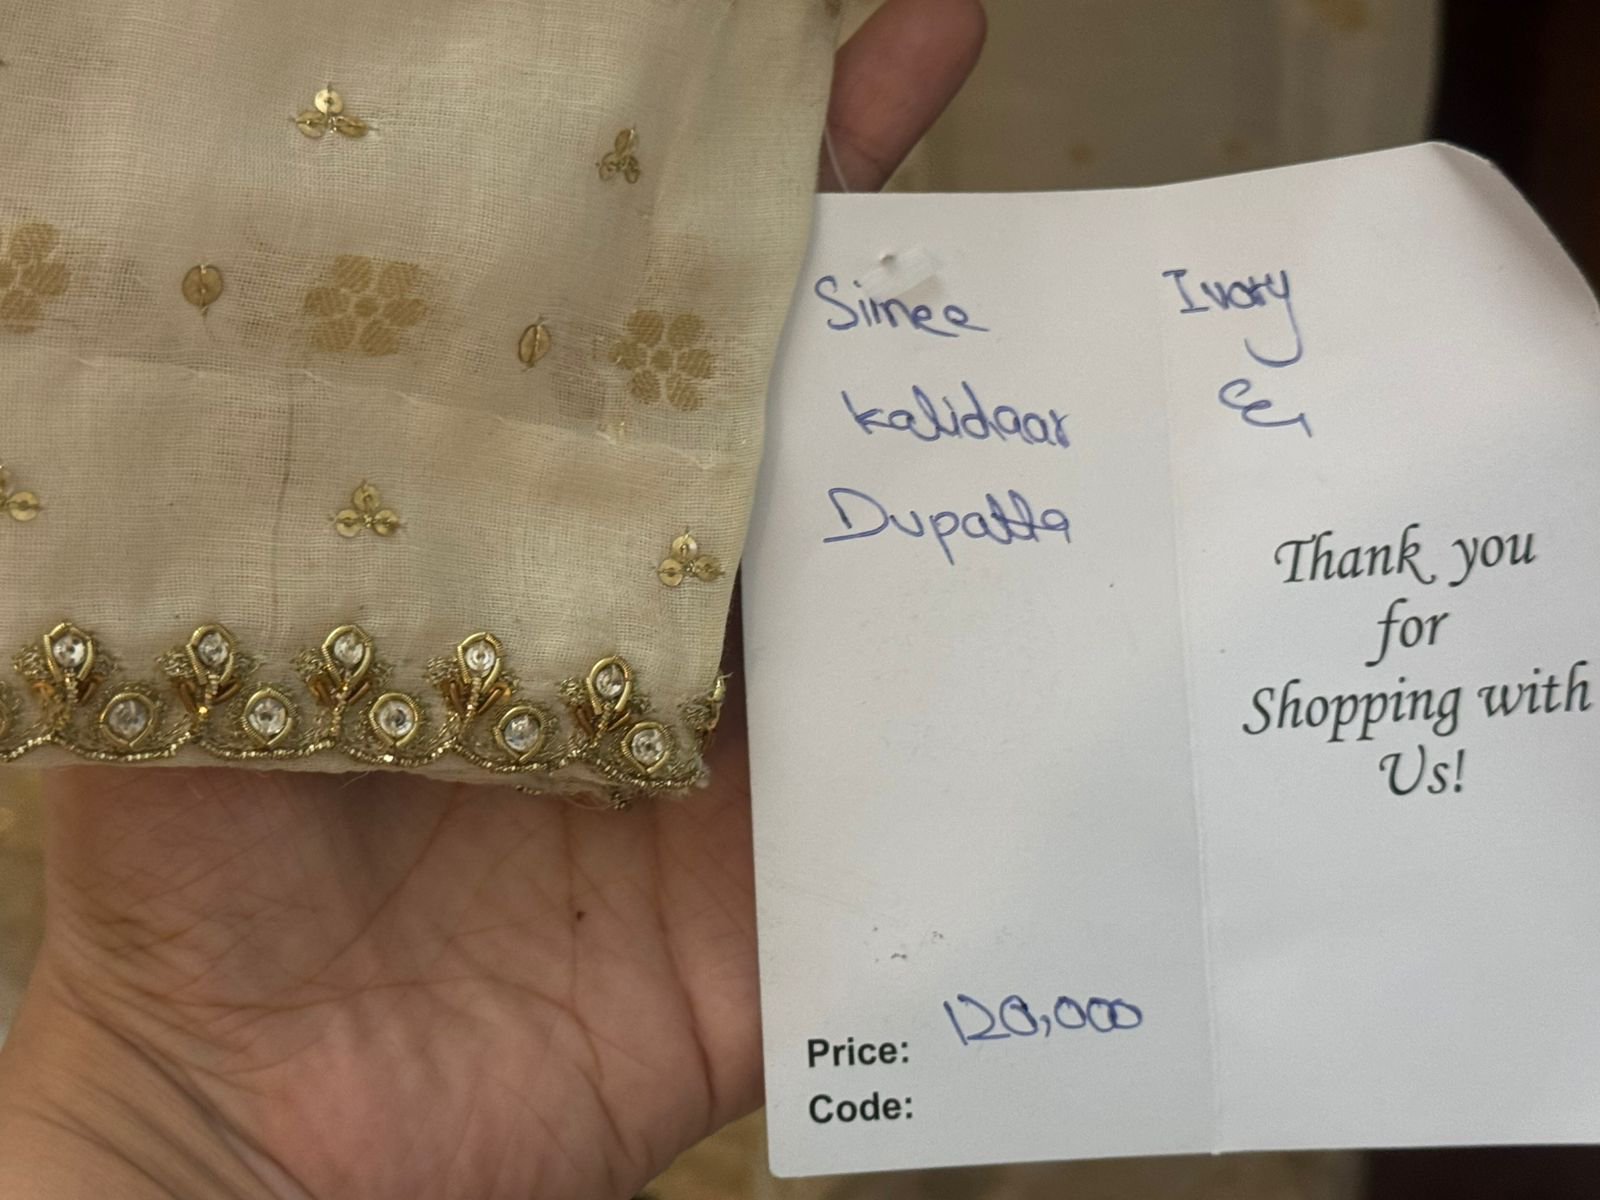 Simee
Kalidaar
Dupatta
Ivory
&
Thank you
for
Shopping with
Us!
Price: 120,000
Code: